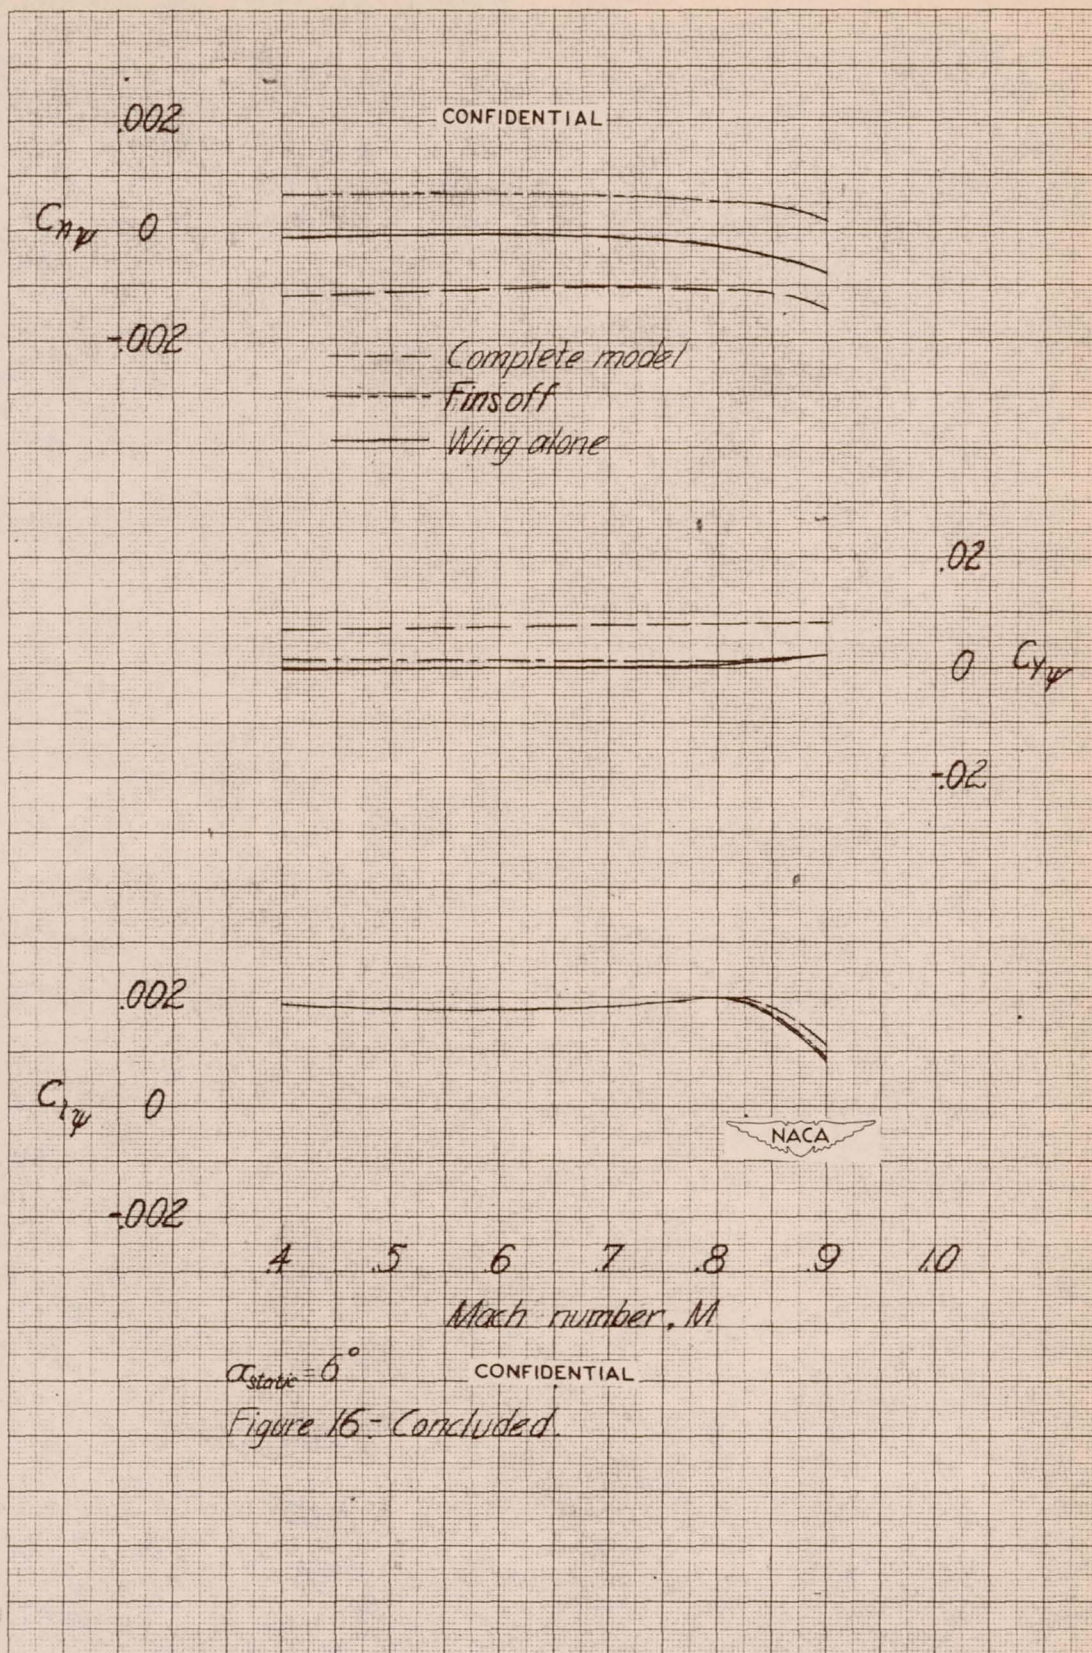 CONFIDENTIAL
.002
Cnψ 0
-.002
Complete model
Fins off
Wing alone
.02
0 CYψ
-.02
.002
Clψ 0
-.002
NACA
.4 .5 .6 .7 .8 .9 1.0
Mach number, M
αstatic = 6°
CONFIDENTIAL
Figure 16.- Concluded.